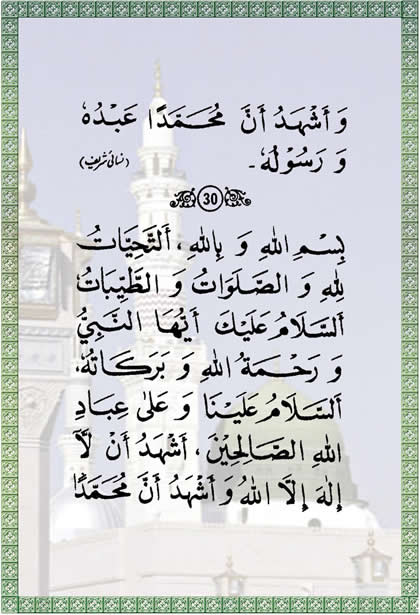 وَ أَشْهَدُ أَنَّ مُحَمَّدًا عَبْدُهٗ
وَ رَسُوْلُهٗ۔ (نسائی شریف)
30
بِسْمِ اللهِ وَ بِاللهِ، اَلتَّحِيَّاتُ
لِلهِ وَ الصَّلَوَاتُ وَ الطَّيِّبَاتُ
اَلسَّلَامُ عَلَيْكَ أَيُّهَا النَّبِيُّ
وَ رَحْمَةُ اللهِ وَ بَرَكَاتُهٗ،
اَلسَّلَامُ عَلَيْنَا وَ عَلىٰ عِبَادِ
اللهِ الصَّالِحِيْنَ، أَشْهَدُ أَنْ لَّآ
إِلٰهَ إِلَّا اللهُ وَ أَشْهَدُ أَنَّ مُحَمَّدًا